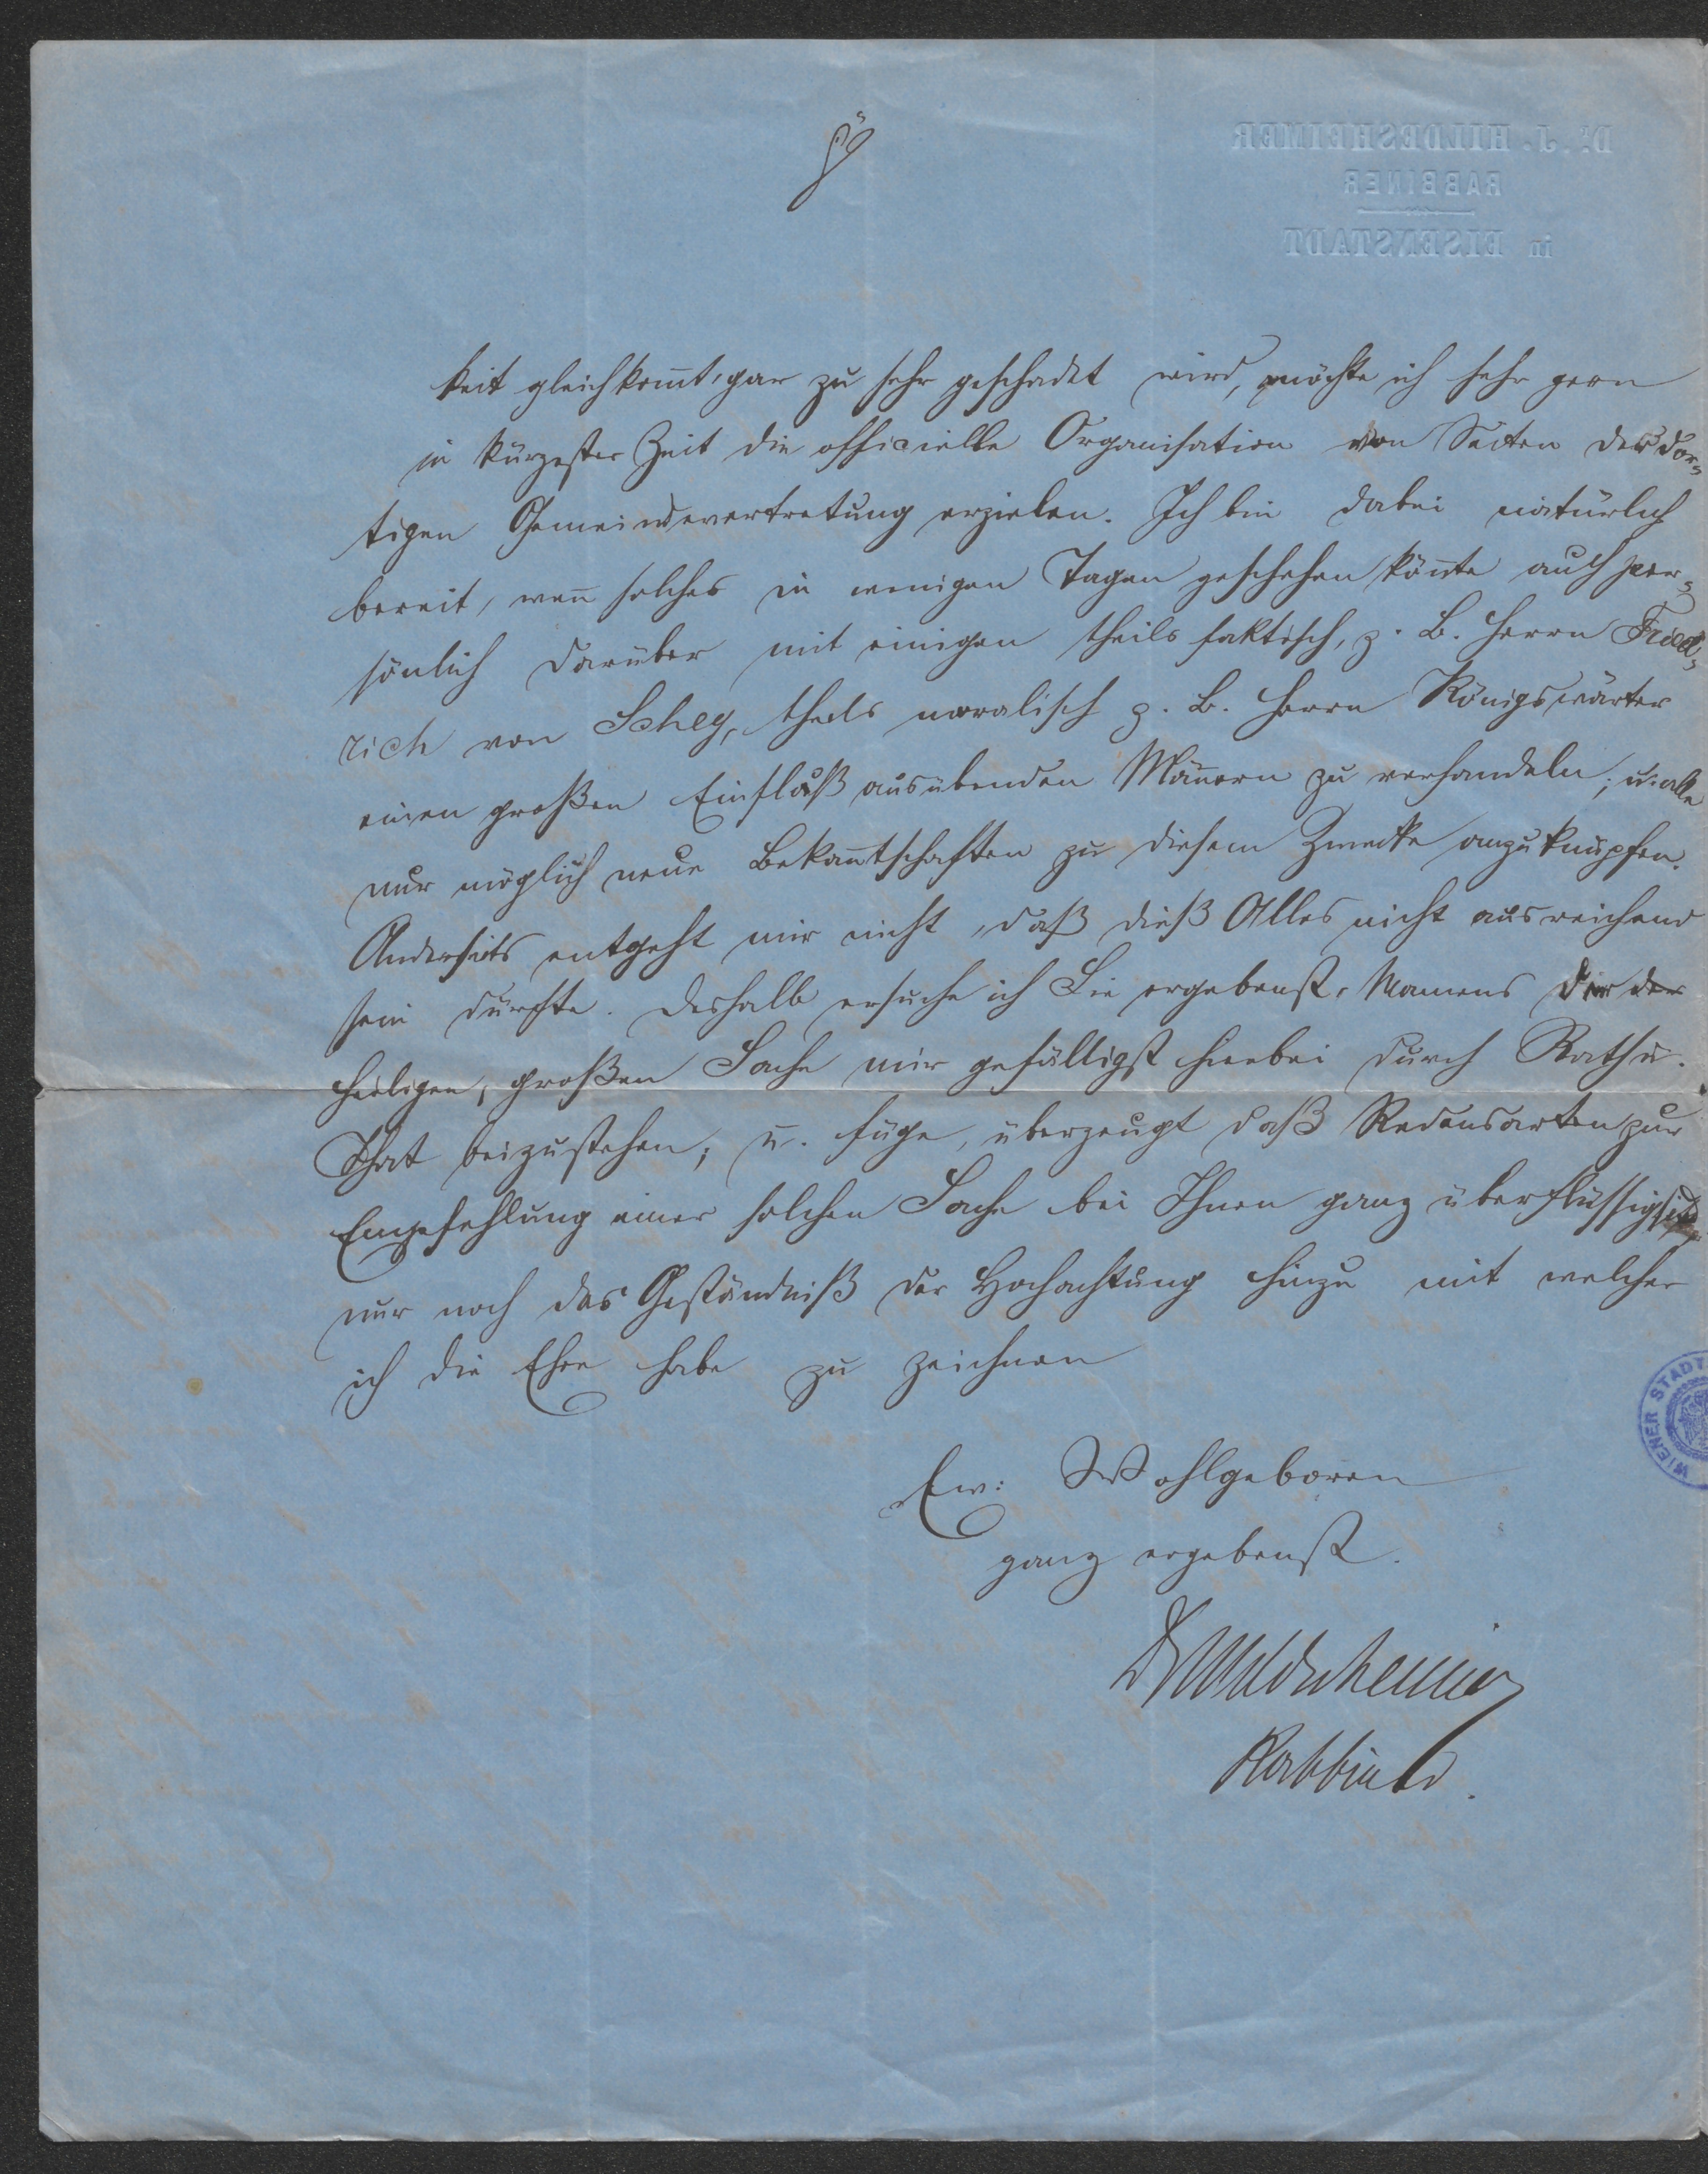 Dr. J. HILDESHEIMER
RABBINER
in EISENSTADT
keit gleichkom̄t, gar zu sehr geschadet wird, möchte ich sehr gern
in kürzester Zeit die officielle Organisation von Seiten der dor⸗
tigen Gemeindevertretung erzielen. Ich bin dabei natürlich
bereit, weñ solches in wenigen Tagen geschehen köñte auch per⸗
sönlich darüber mit einigen theils faktisch, z. B. Herrn Fried⸗
rich von Schey, theils moralisch z. B. Herrn Königswärter
einen großen Einfluß ausübenden Mäñern zu verhandeln; u. alle
nur möglich neue Bekañtschaften zu diesem Zwecke anzuknüpfen.
Anderseits entgeht mir nicht, daß dieß Alles nicht ausreichend
sein dürfte. Deshalb ersuche ich Sie ergebenst, Namens der
heiligen, großen Sache mir gefälligst hierbei durch Rath u.
That beizustehen; u. füge, überzeugt daß Redensarten zur
Empfehlung einer solchen Sache bei Ihnen ganz überflüssig sind
nur noch das Geständniß der Hochachtung hinzu mit welcher
ich die Ehre habe zu zeichnen
Ew: Wohlgeboren
ganz ergebenst.
Dr Hildesheimer
Rabbiner.
WIENER STADT